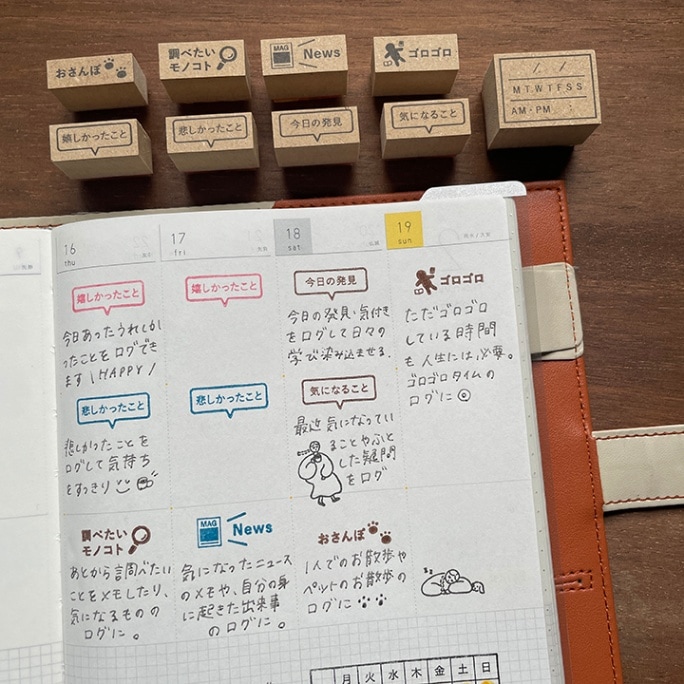 おさんぽ
調べたい
モノコト
MAG
News
ゴロゴロ
/ /
M T W T F S S
AM・PM :
嬉しかったこと
悲しかったこと
今日の発見
気になること
16
thu
17
fri
18
sat
19
sun
嬉しかったこと
今日あったうれしか
ったことをログでき
ます \HAPPY/
悲しかったこと
悲しかったことを
ログして気持ち
をすっきり
調べたい
モノコト
あとから調べたい
ことをメモしたり、
気になるものの
ログに。
嬉しかったこと
悲しかったこと
MAG
News
気になったニュース
のメモや、自分の身
に起きた出来事
のログに。
今日の発見
今日の発見・気付き
をログして日々の
学で染み込ませる.
気になること
最近気になってい
ることやふと
した疑問
をログ
おさんぽ
1人でのお散歩や
ペットのお散歩の
ログに
ゴロゴロ
ただゴロゴロ
している時間
も人生には、必要。
ゴロゴロタイムの
ログに
zz
月 火 水 木 金 土 日